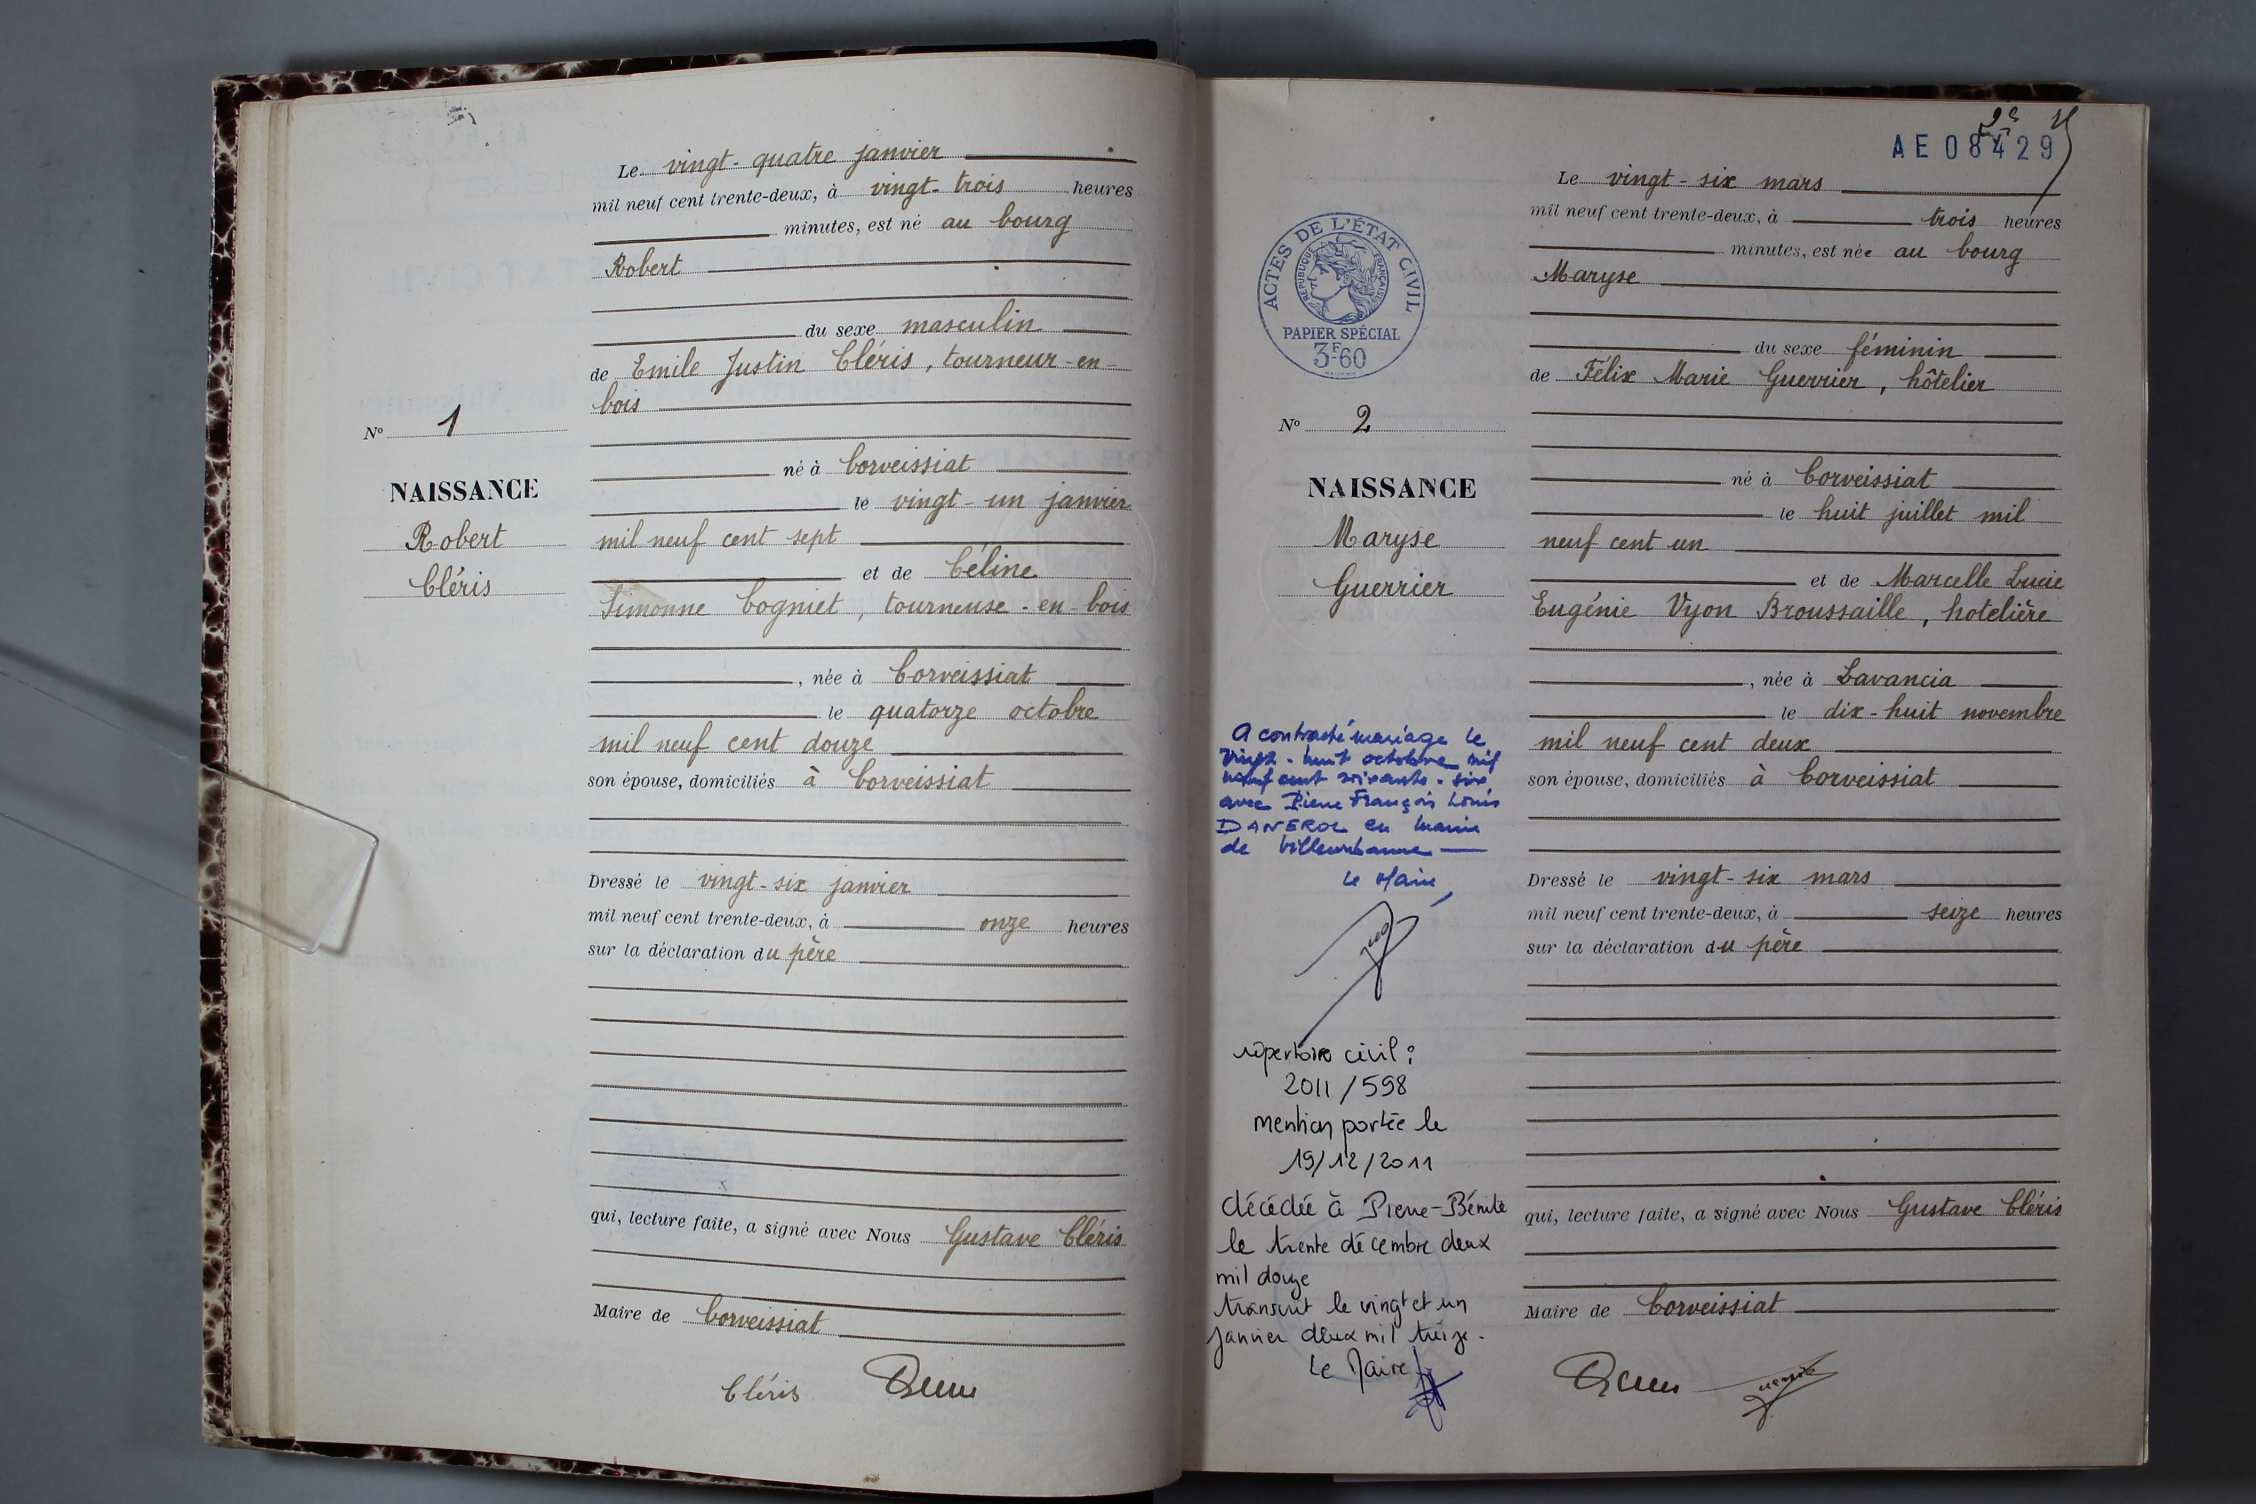 Le vingt-quatre janvier
mil neuf cent trente-deux, à vingt-trois heures
minutes, est né au bourg
Robert
du sexe masculin
de Emile Justin Cléris, tourneur-en-
bois
né à Corveissiat
le vingt-un janvier
mil neuf cent sept
et de Céline
Simonne Cogniet, tourneuse-en-bois
, née à Corveissiat
le quatorze octobre
mil neuf cent douze
son épouse, domiciliés à Corveissiat
Dressé le vingt-six janvier
mil neuf cent trente-deux, à onze heures
sur la déclaration du père
qui, lecture faite, a signé avec Nous Gustave Cléris
Maire de Corveissiat
Cléris
No 1
NAISSANCE
Robert
Cléris
AE 08429
ACTES DE L'ÉTAT CIVIL
RÉPUBLIQUE FRANÇAISE
PAPIER SPÉCIAL
3F60
No 2
NAISSANCE
Maryse
Guerrier
A contracté mariage le
vingt-huit octobre mil
neuf cent soixante-six
avec Pierre François Louis
DANEROL en mairie
de Villeurbanne
Le Maire,
répertoire civil :
2011/598
mention portée le
19/12/2011
décédée à Pierre-Bénite
le trente décembre deux
mil douze
transcrit le vingt et un
janvier deux mil treize.
Le Maire
Le vingt-six mars
mil neuf cent trente-deux, à trois heures
minutes, est née au bourg
Maryse
du sexe féminin
de Félix Marie Guerrier, hôtelier
né à Corveissiat
le huit juillet mil
neuf cent un
et de Marcelle Lucie
Eugénie Vyon Broussaille, hotelière
, née à Lavancia
le dix-huit novembre
mil neuf cent deux
son épouse, domiciliés à Corveissiat
Dressé le vingt-six mars
mil neuf cent trente-deux, à seize heures
sur la déclaration du père
qui, lecture faite, a signé avec Nous Gustave Cléris
Maire de Corveissiat